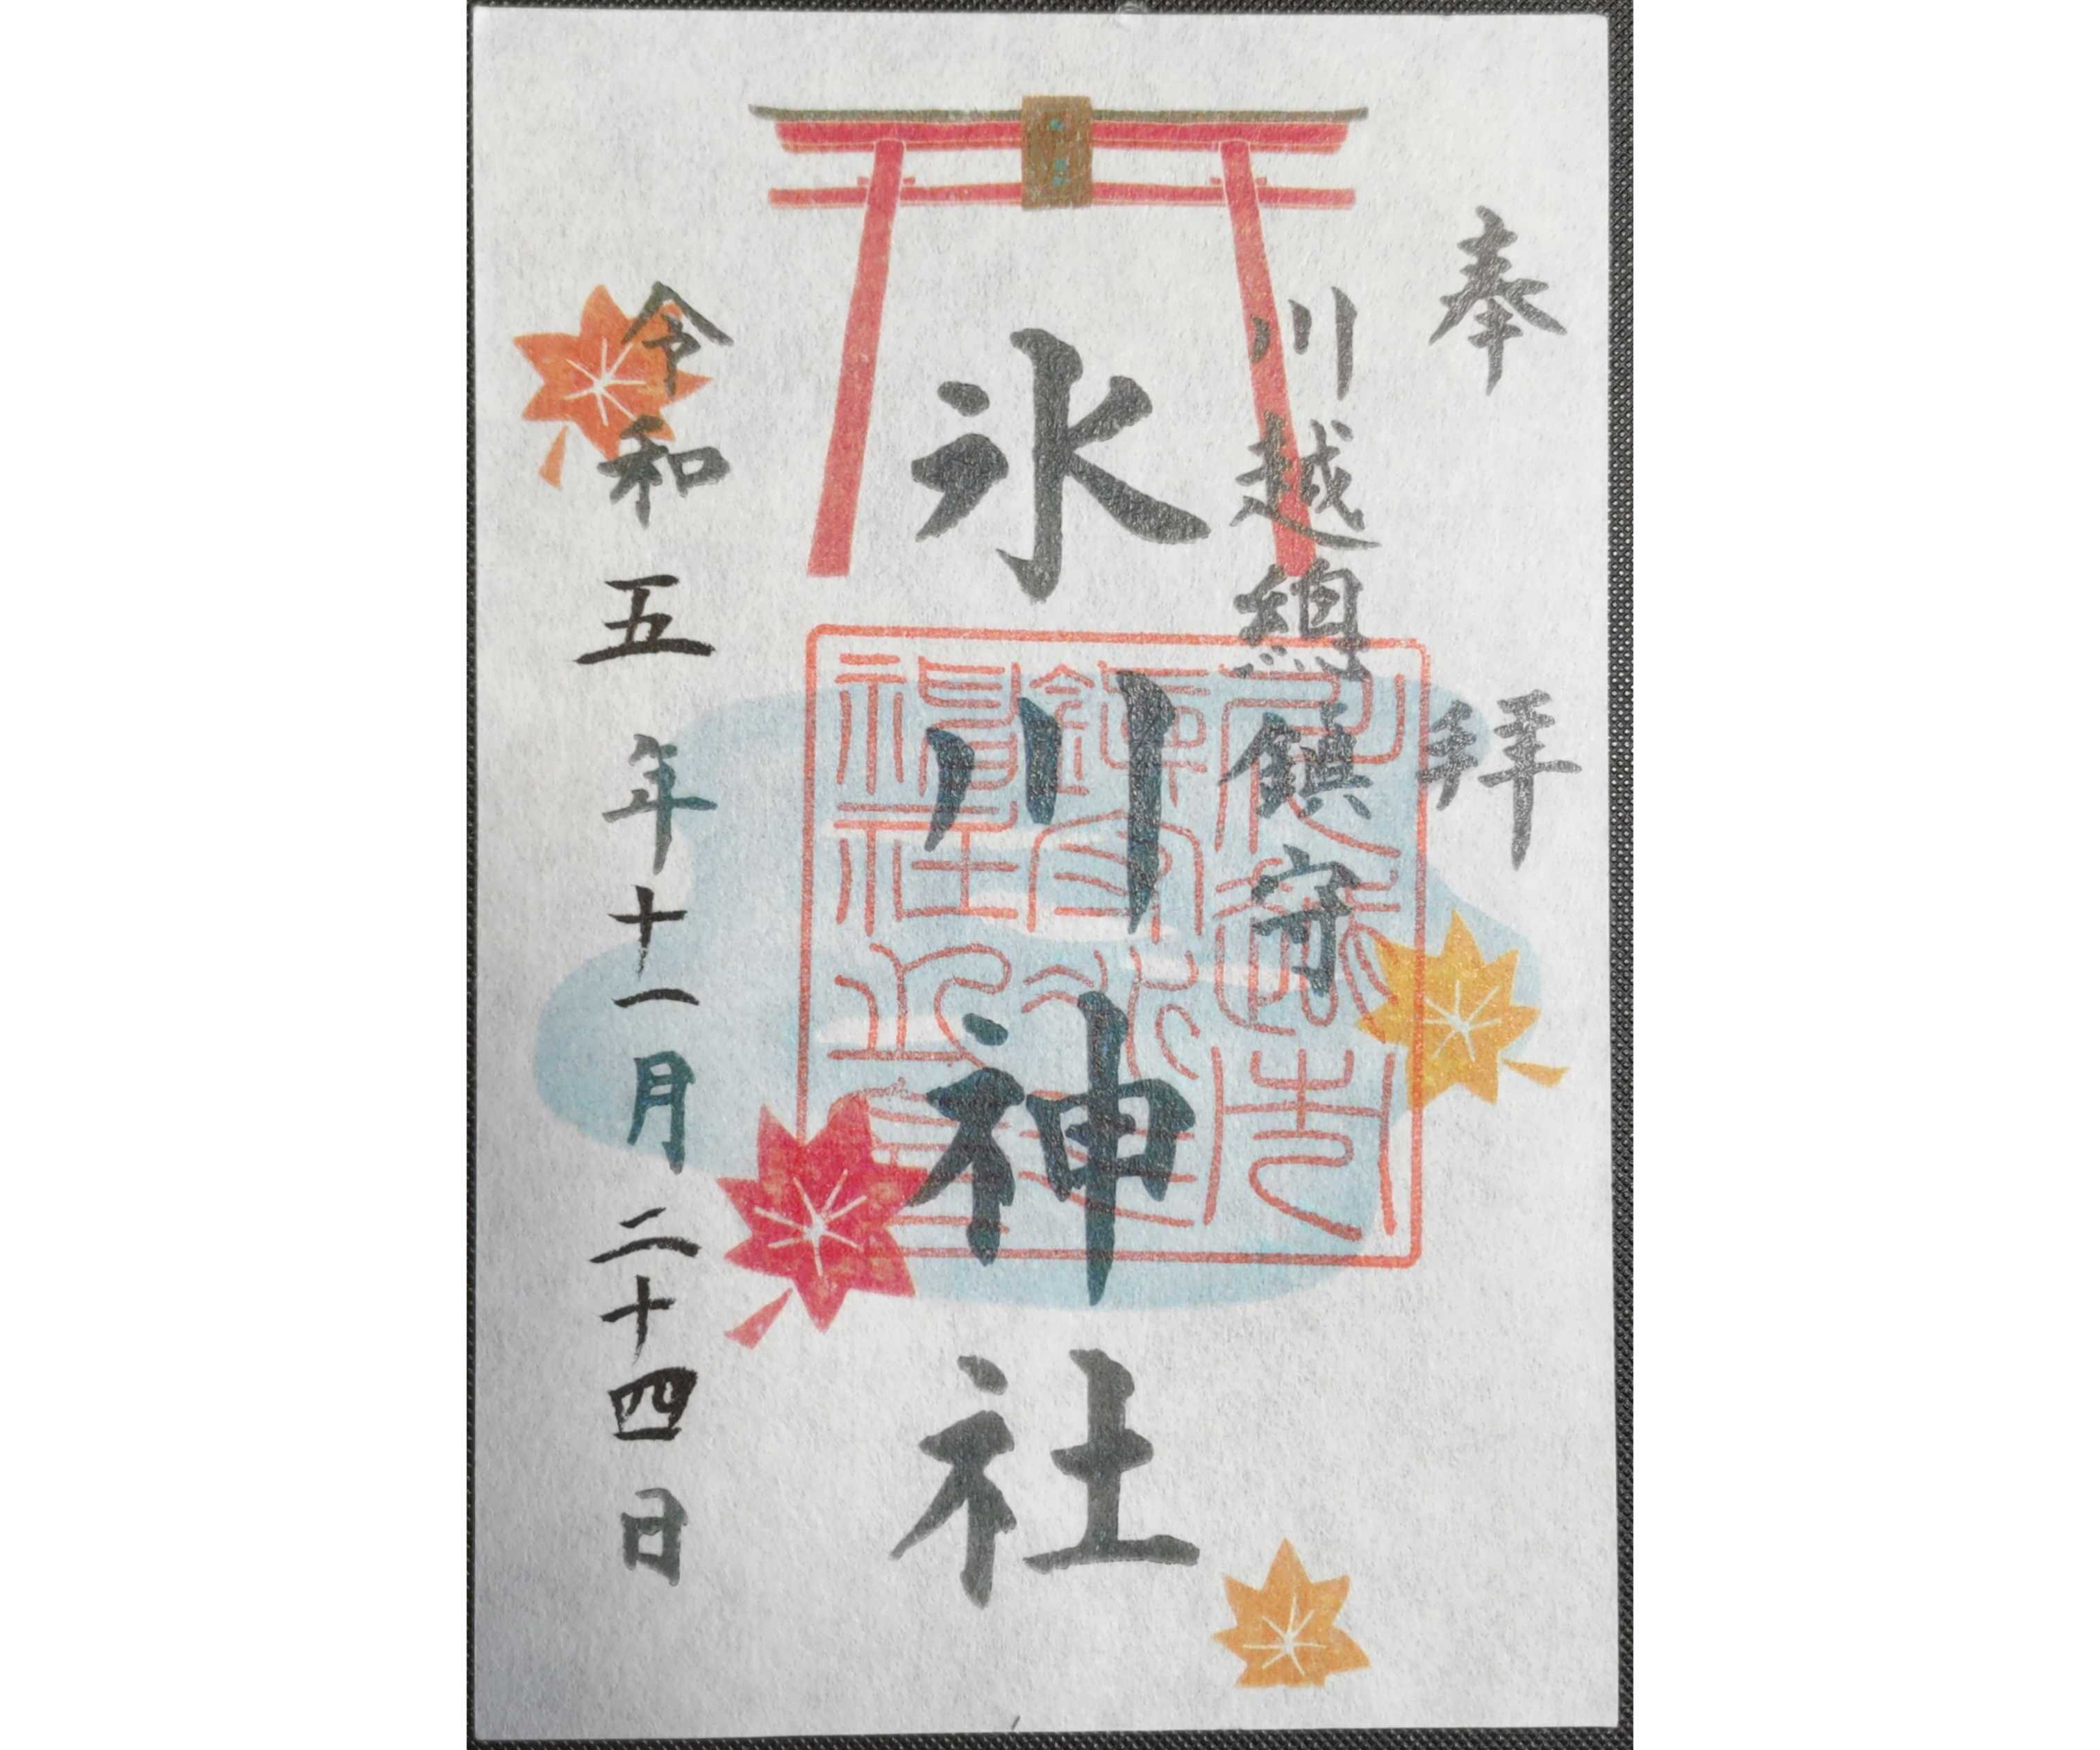 奉拝
川越総鎮守
氷川神社
令和五年十一月二十四日